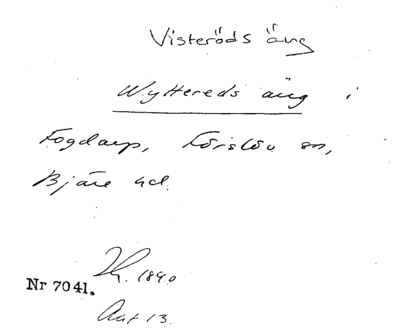 Visteröds äng
Wyttereds äng i
Fogdarp, Förslöv sn,
Bjäre hd.
1840
Nr 7041.
Akt 13.